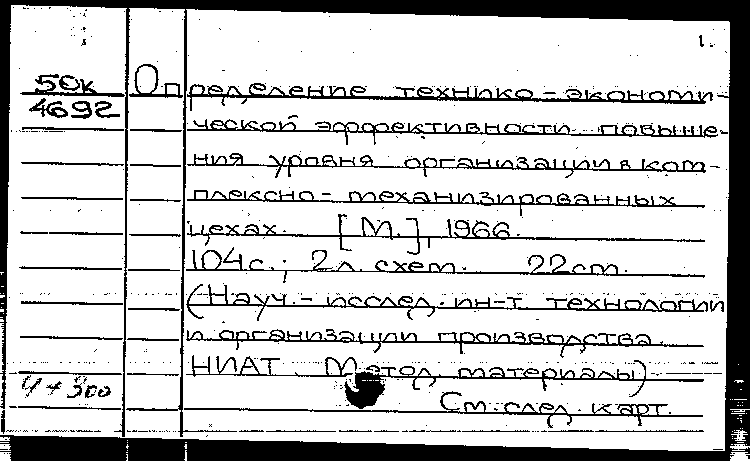 1.
50к
4692
Определение технико-экономи-
ческой эффективности повыше-
ния уровня организации в ком-
плексно-механизированных
цехах. [М.], 1966.
104с.; 2л. схем. 22см.
(Науч.-исслед. ин-т технологии
и организации производства
НИАТ. Метод. материалы)
4+300
См. след. карт.